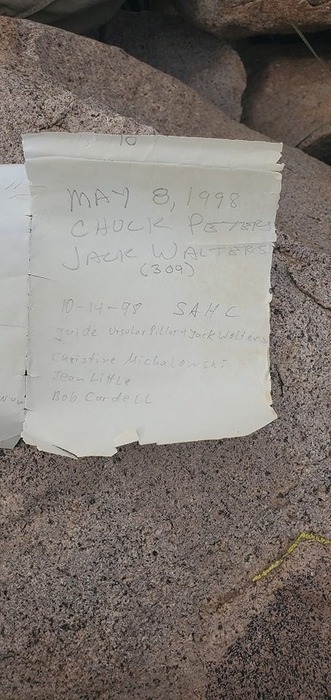 10
MAY 8, 1998
CHUCK PETERS
JACK WALTERS
(309)
10-14-98 SAHC
guide Ursular Pillar + Jack Walters
Christine Michalowski
Jean Little
Bob Cardell